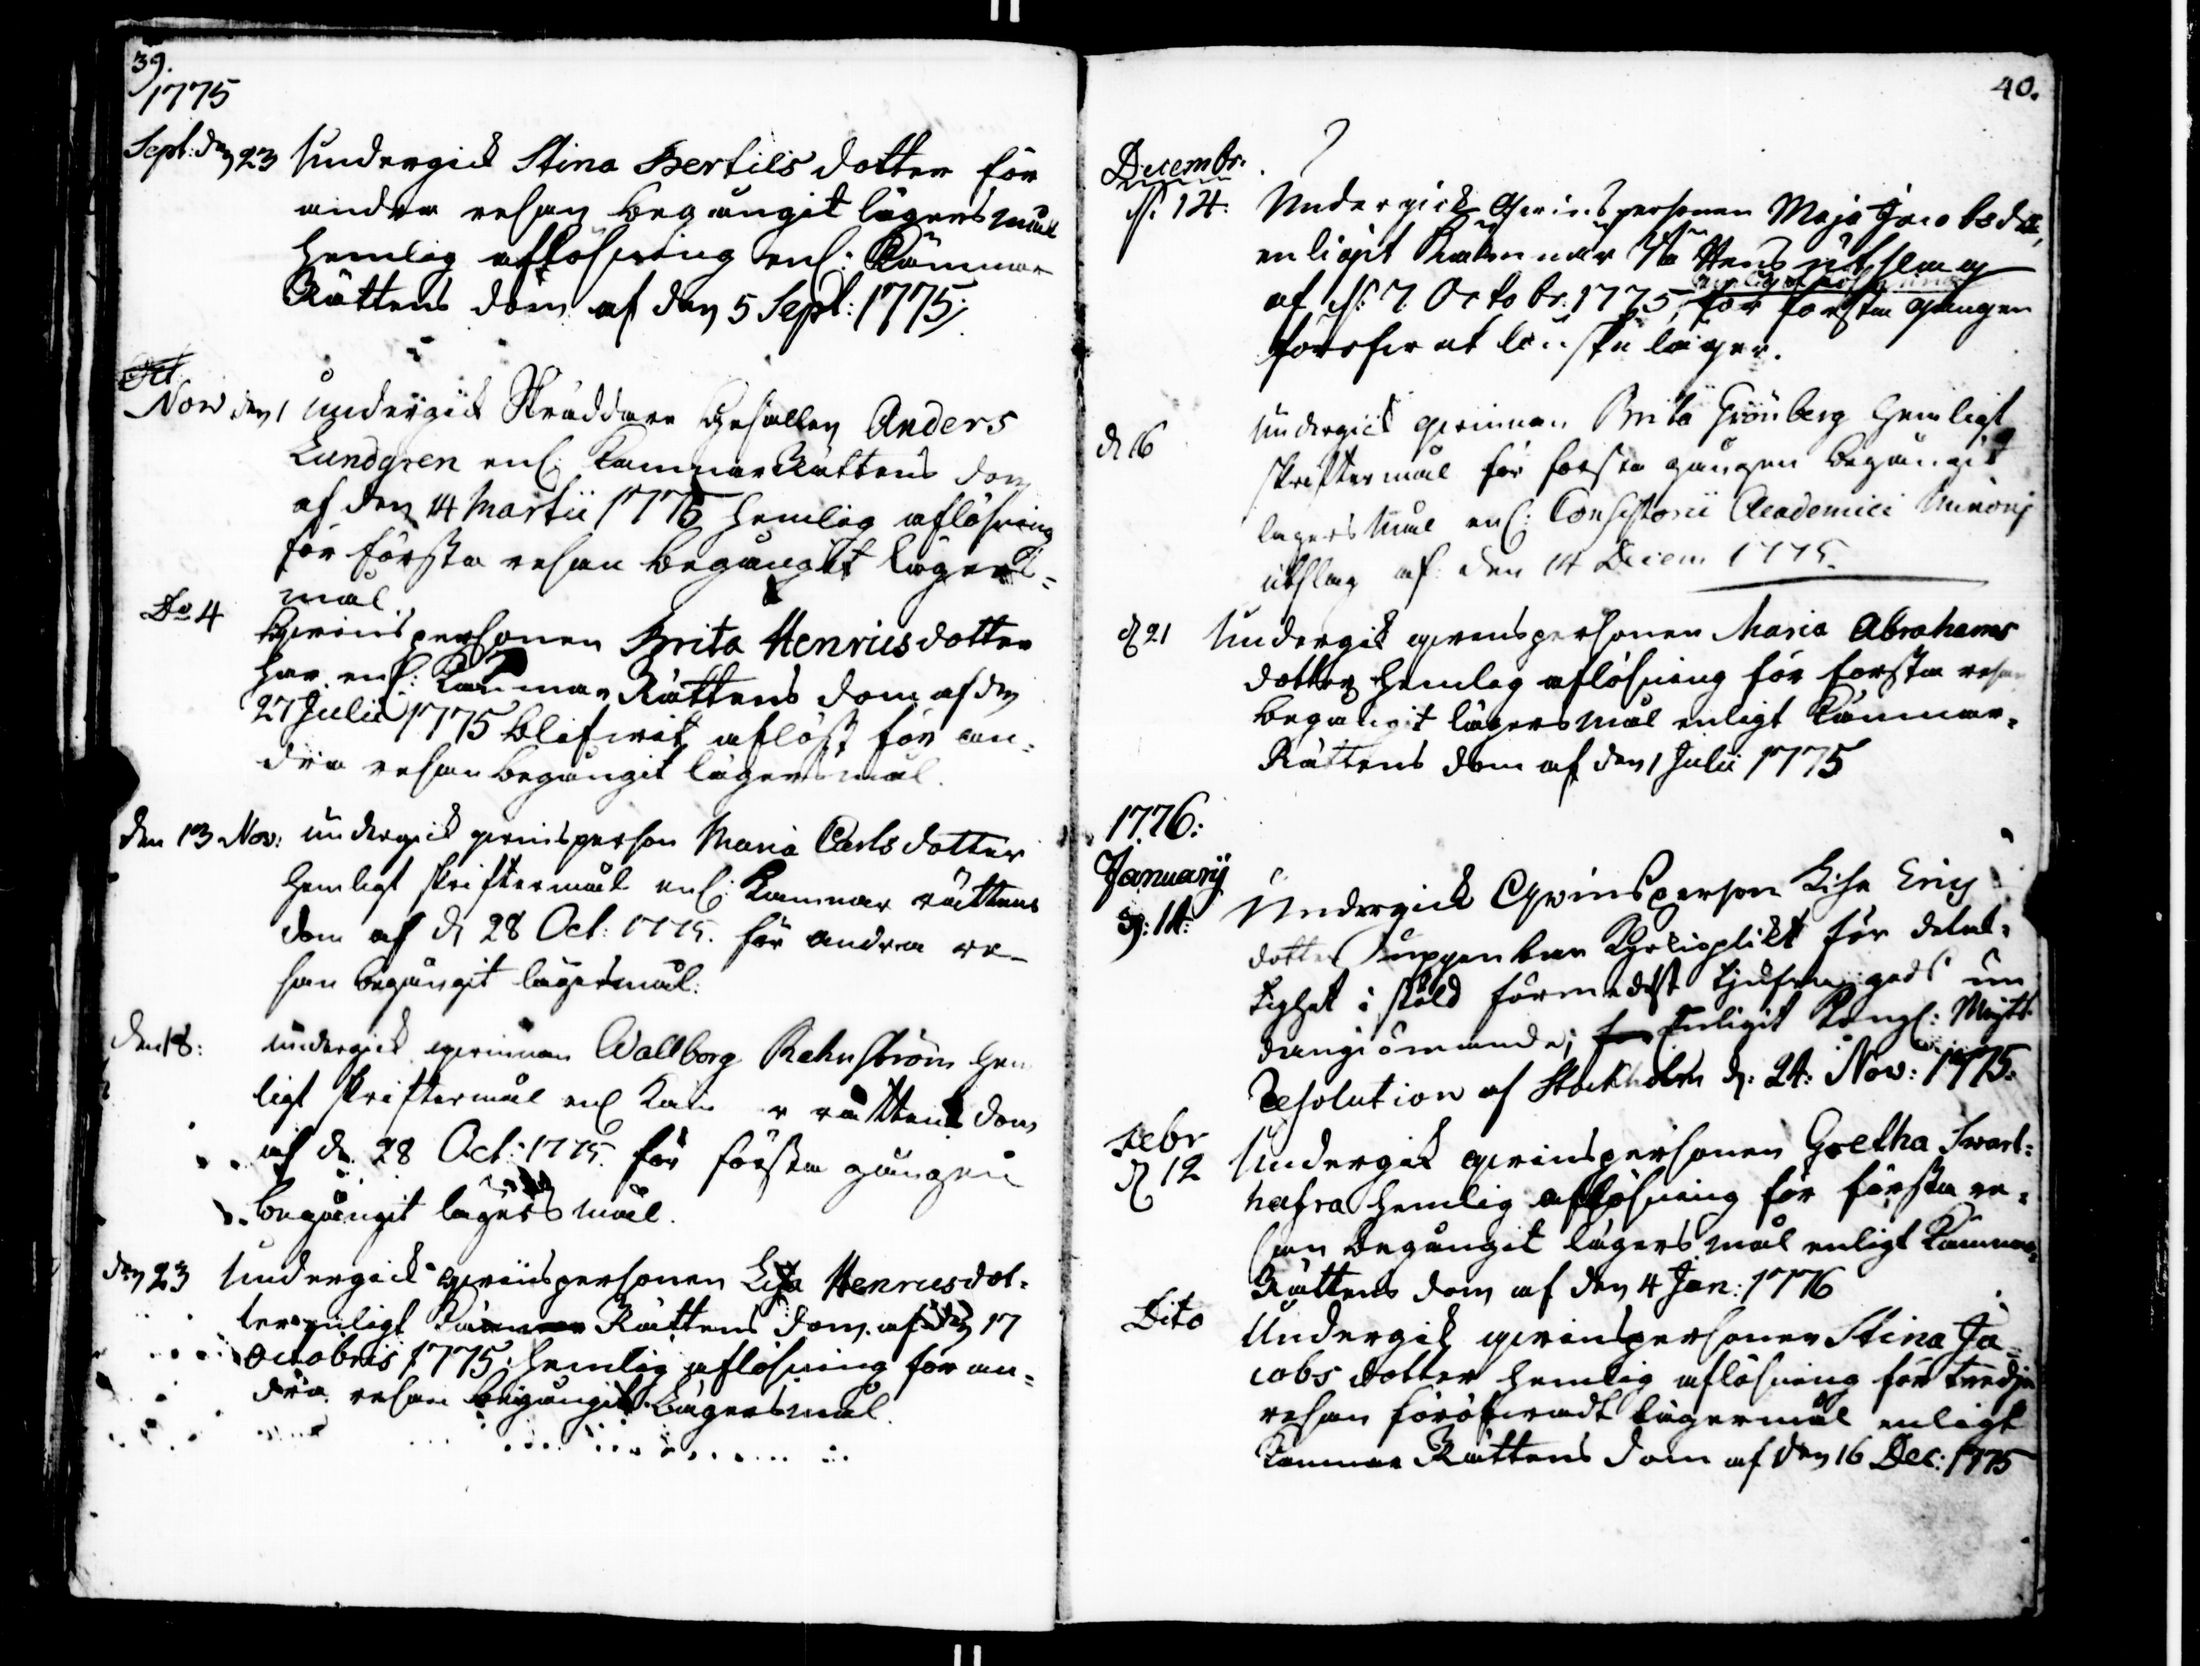 39.
1775
Sept: den 23 Undergick Stina Bertils dotter för
andra resan begångit lägersmål
hemlig aflösning enl: Kämnär
Rättens dom af den 5 Sept: 1775.
Oct
Nov den 1 undergick Skräddare Gesällen Anders
Lundgren enl: Kämnär Rättens dom
af den 14 Martii 1775 hemlig aflösning
för första resan begångit lägers-
mål.
Do 4 Qvinspersonen Brita Henricsdotter
har enl: Kämnär Rättens dom af den
27 Julii 1775 blifwit aflöst för an-
dra resan begångit lägersmål.
den 13 Nov: undergick qvinsperson Maria Carlsdotter
hemligt skriftermål enl: Kämnär rättens
dom af d. 28 Oct: 1775. för andra re-
san begångit lägersmål.
den 18: undergick qvinnan Wallborg hem
ligt skriftermål enl rättens dom
af d. 28 Oct: 1775. för första gången
begångit lägersmål.
den 23 Undergick qvinspersonen Lisa Henricsdot-
ter enligt Kämnär Rättens dom af den 17
Octobris 1775 hemlig aflösning för an-
dra resan begångit Lägersmål.
40.
Decembr.
d. 14: Undergick Qvinspersonen Maja Jacobsdtr,
enligit Kämnär Rättens utslag
af d. 7 Octobr. 1775, för första gången
föröfwat lönska läger.
d 16 undergick qvinnan Brita Grönberg hemligt
skriftermål för första gången begångit
lägersmål enl: Consistorii Academici Minoris
utslag af den 14 Decem 1775.
d 21 Undergick qvinspersonen Maria Abrahams
dotter hemlig aflösning för första resan
begångit lägersmål enligt Kämnär-
Rättens dom af den 1 Julii 1775
1776:
Januarij
d: 14: Undergick Qvinsperson Lisa Erics
dotter uppenbar Kyrkioplikt för delak-
tighet i stöld förmedelst tjufwegods un
dangiömande; enligit Kongl: Majts
Resolution af Stockholm d: 24: Nov: 1775:
Febr
d 12 Undergick qvinspersonen Gretha Swart-
hafra hemlig aflösning för första re-
san begångit lägersmål enligt Kämnär-
Rättens dom af den 4 Jan: 1776
Dito Undergick qvinspersonen Stina Ja-
cobs dotter hemlig aflösning för tredje
resan föröfwadt lägersmål enligt
Kämnär Rättens dom af den 16 Dec: 1775